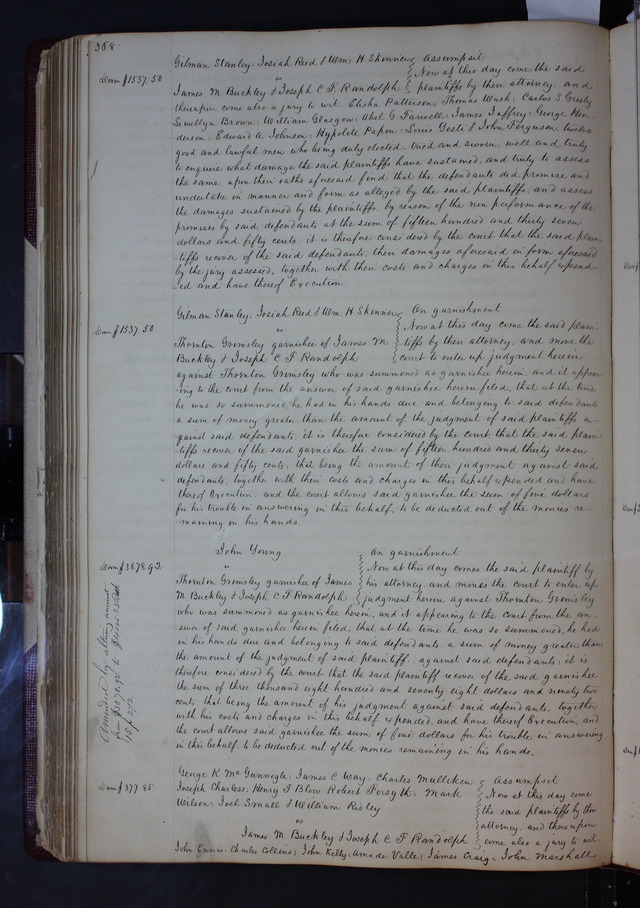 368
Gilman Stanley: Josiah Reed & Wm: H Skinner Assumpsit
Dam $1537.50
vs Now at this day come the said
James M Buckley & Joseph C F Randolph plaintiffs by their attorney, and
thereupon come also a jury to wit. Elisha Patterson: Thomas Wash: Carlos S Greely
Sewellyn Brown: William Glasgow: Abel G Farwell: James Jaffrey: George Hen-
derson: Edward A Johnson: Hypolite Papen: Louis Yosti & John Ferguson, twelve
good and lawful men who being duly elected, tried and sworn, well and truly
to enquire what damage the said plaintiffs have sustained, and truly to assess
the same upon their oaths aforesaid find that the defendants did promise and
undertake in manner and form as alleged by the said plaintiffs, and assess
the damages sustained by the plaintiffs by reason of the non performance of the
promises by said defendants at the sum of fifteen hundred and thirty seven
dollars and fifty cents, it is therefore considered by the court that the said plain-
tiffs recover of the said defendants, their damages aforesaid in form aforesaid
by the jury assessed, together with their costs and charges in this behalf expend
ed and have thereof Execution.
Gilman Stanley: Josiah Reed & Wm. H Skinner On garnishment
Dam $1537.50
vs Now at this day come the said plain-
Thornton Grimsley garnishee of James M tiffs by their attorney, and move the
Buckley & Joseph C F Randolph court to enter up judgment herein
against Thornton Grimsley who was summoned as garnishee herein, and it appear-
ing to the court from the answer of said garnishee herein filed, that at the time
he was so summoned, he had in his hands due and belonging to said defendants
a sum of money greater than the amount of the judgment of said plaintiffs a-
gainst said defendants, it is therefore considered by the court, that the said plain-
tiffs recover of the said garnishee the sum of fifteen hundred and thirty seven
dollars and fifty cents, that being the amount of their judgment against said
defendants, together with their costs and charges in this behalf expended and have
thereof Execution. and the court allows said garnishee the sum of five dollars
for his trouble in answering in this behalf, to be deducted out of the monies re-
maining in his hands.
John Young On garnishment
Dam $3878.92
vs Now at this day comes the said plaintiff by
Thornton Grimsley garnishee of James his attorney, and moves the court to enter up
M Buckley & Joseph C F Randolph judgment herein against Thornton Grimsley
who was summoned as garnishee herein, and it appearing to the court from the an-
swer of said garnishee herein filed, that at the time he was so summoned, he had
in his hands due and belonging to said defendants a sum of money greater than
the amount of the judgment of said plaintiff against said defendants: it is
therefore considered by the court that the said plaintiff recover of the said garnishee
the sum of three thousand eight hundred and seventy eight dollars and ninety two
cents, that being the amount of his judgment against said defendants, together
with his costs and charges in this behalf expended, and have thereof Execution, and
the court allows said garnishee the sum of five dollars for his trouble in answering
in this behalf, to be deducted out of the monies remaining in his hands.
Amended by altering amount
George K McGunnegle: James C Way: Charles Mulliken Assumpsit
Dam $377.85
Joseph Charless: Henry T Blow Robert Forsyth: Mark Now at this day come
Wilson: Joel Small & William Risley the said plaintiffs by their
vs attorney, and thereupon
James M Buckley & Joseph C F Randolph come also a jury to wit
John Ennis: Charles Collins: John Kelly: Amade Valle: James Craig: John Marshall